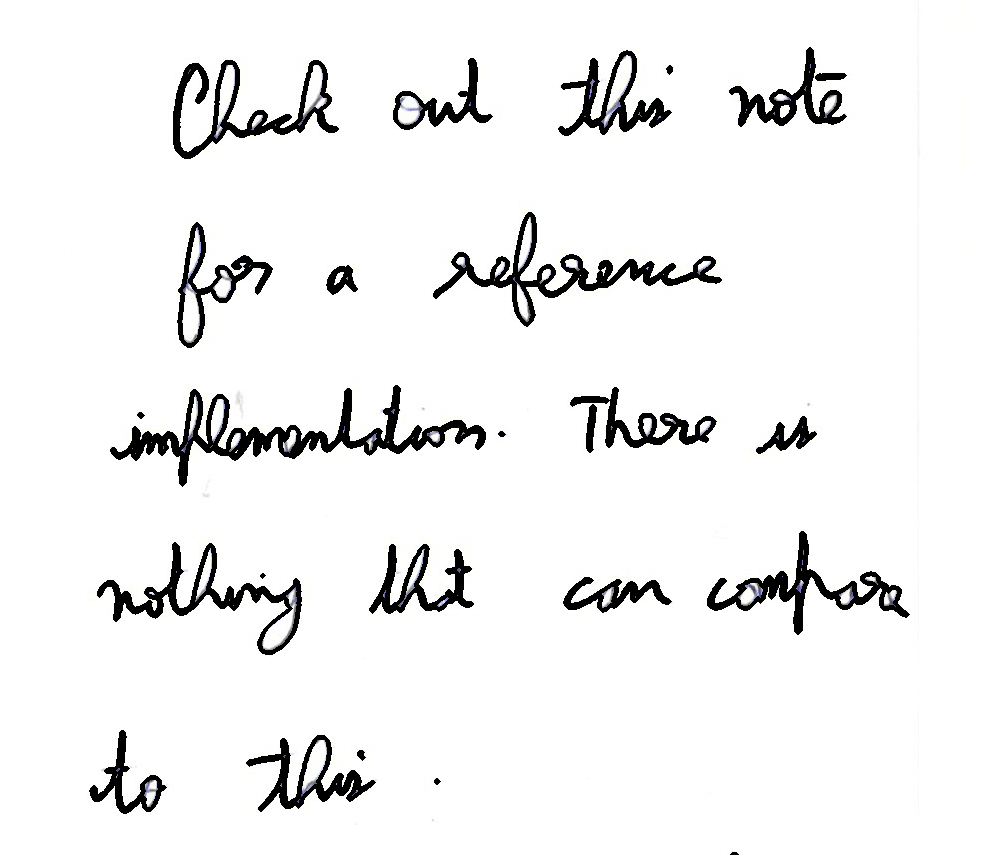 Check out this note
for a reference
implementation. There is
nothing that can compare
to this.